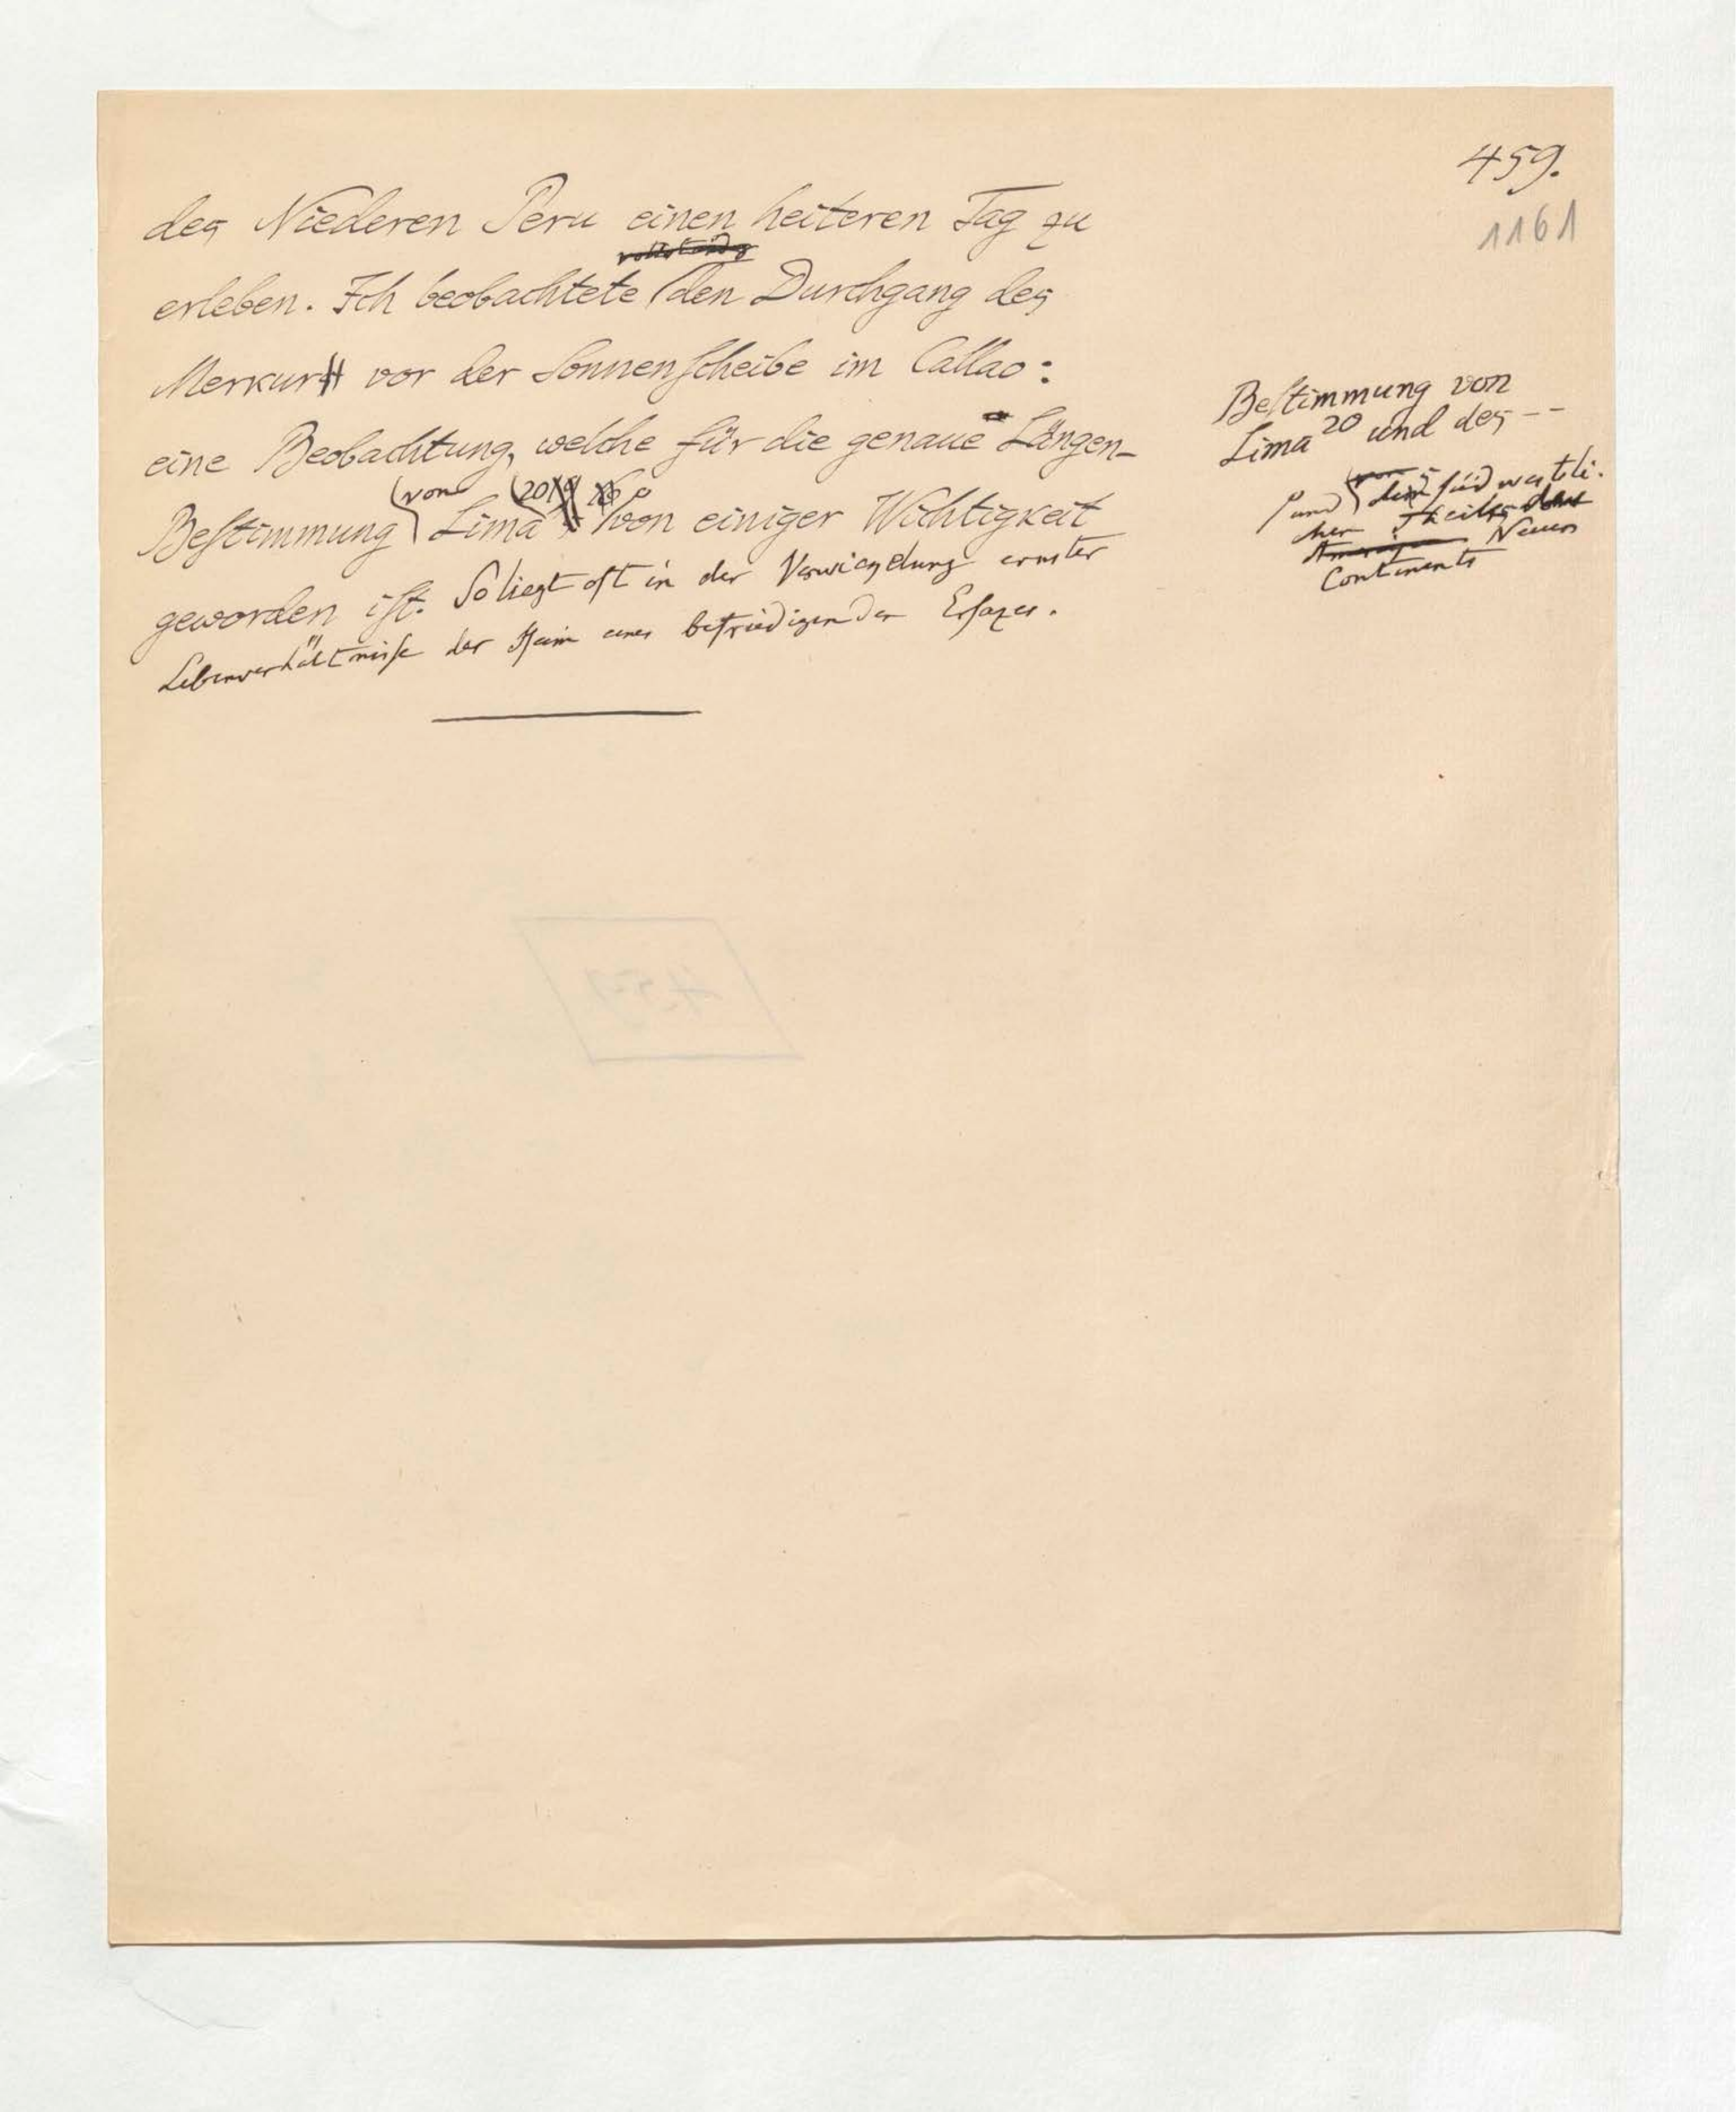 459.
1161
des Niederen Peru einen heiteren Tag zu
vollständig
erleben. Ich beobachtete den Durchgang des
Merkurs vor der Sonnenscheibe im Callao:
eine Beobachtung, welche für die genaue Längen-
von 20
Bestimmung Lima von einiger Wichtigkeit
geworden ist. So liegt oft in der Verwickelung ernster
Lebenverhältnisse der Keim eines befriedigenden Ersazes.
Bestimmung von
Lima 20 und des --
und des südwestli-
chen Theils des
Neuen
Continents